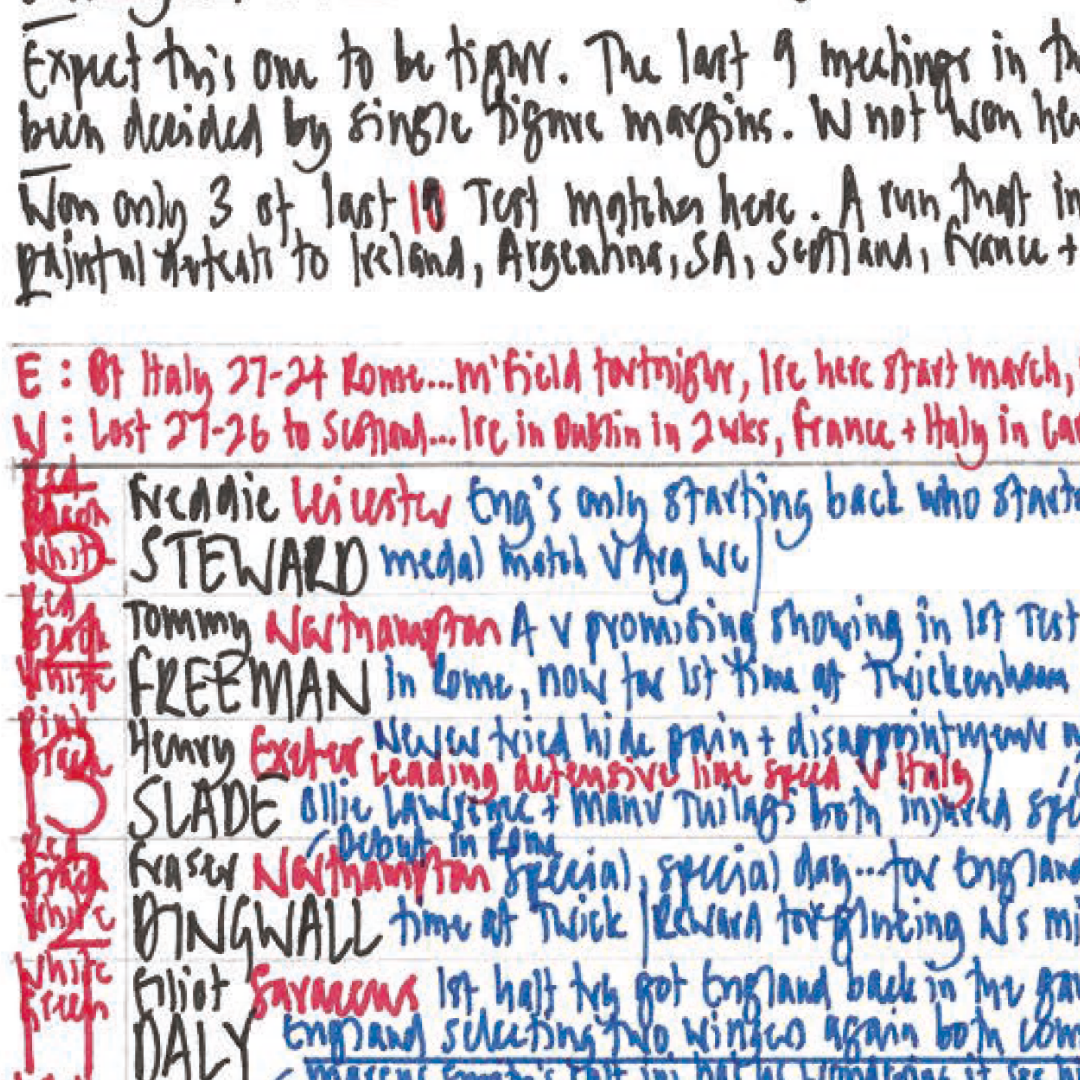 Expect this one to be tight. The last 9 meetings in
been decided by single figure margins. W not won
Won only 3 of last 10 Test matches here. A run that in
painful defeats to Ireland, Argentina, SA, Scotland, France +
E: Bt Italy 27-24 Rome...m'field fortnight, Ire here start march,
W: Lost 27-26 to Scotland...Ire in Dublin in 2 wks, France + Italy in
Red
Bacon
White
15
Freddie Leicester Eng's only starting back who
STEWARD medal match v Arg WC
Red
Black
White
14
Tommy Northampton A v promising showing in 1st Test
FREEMAN in Rome, now for 1st time at Twickenham
Pink
Green
13
Henry Exeter Never tried hide pain + disappointment
Leading defensive line speed v Italy
SLADE Ollie Lawrence + Manu Tuilagi both injured
Debut in Rome
Red
Black
White
12
Fraser Northampton Special, special day...for England
DINGWALL time at Twick Reward for glueing N's
White
Green
11
Elliot Saracens 1st half try got England back in the
DALY England selecting two wingers again both